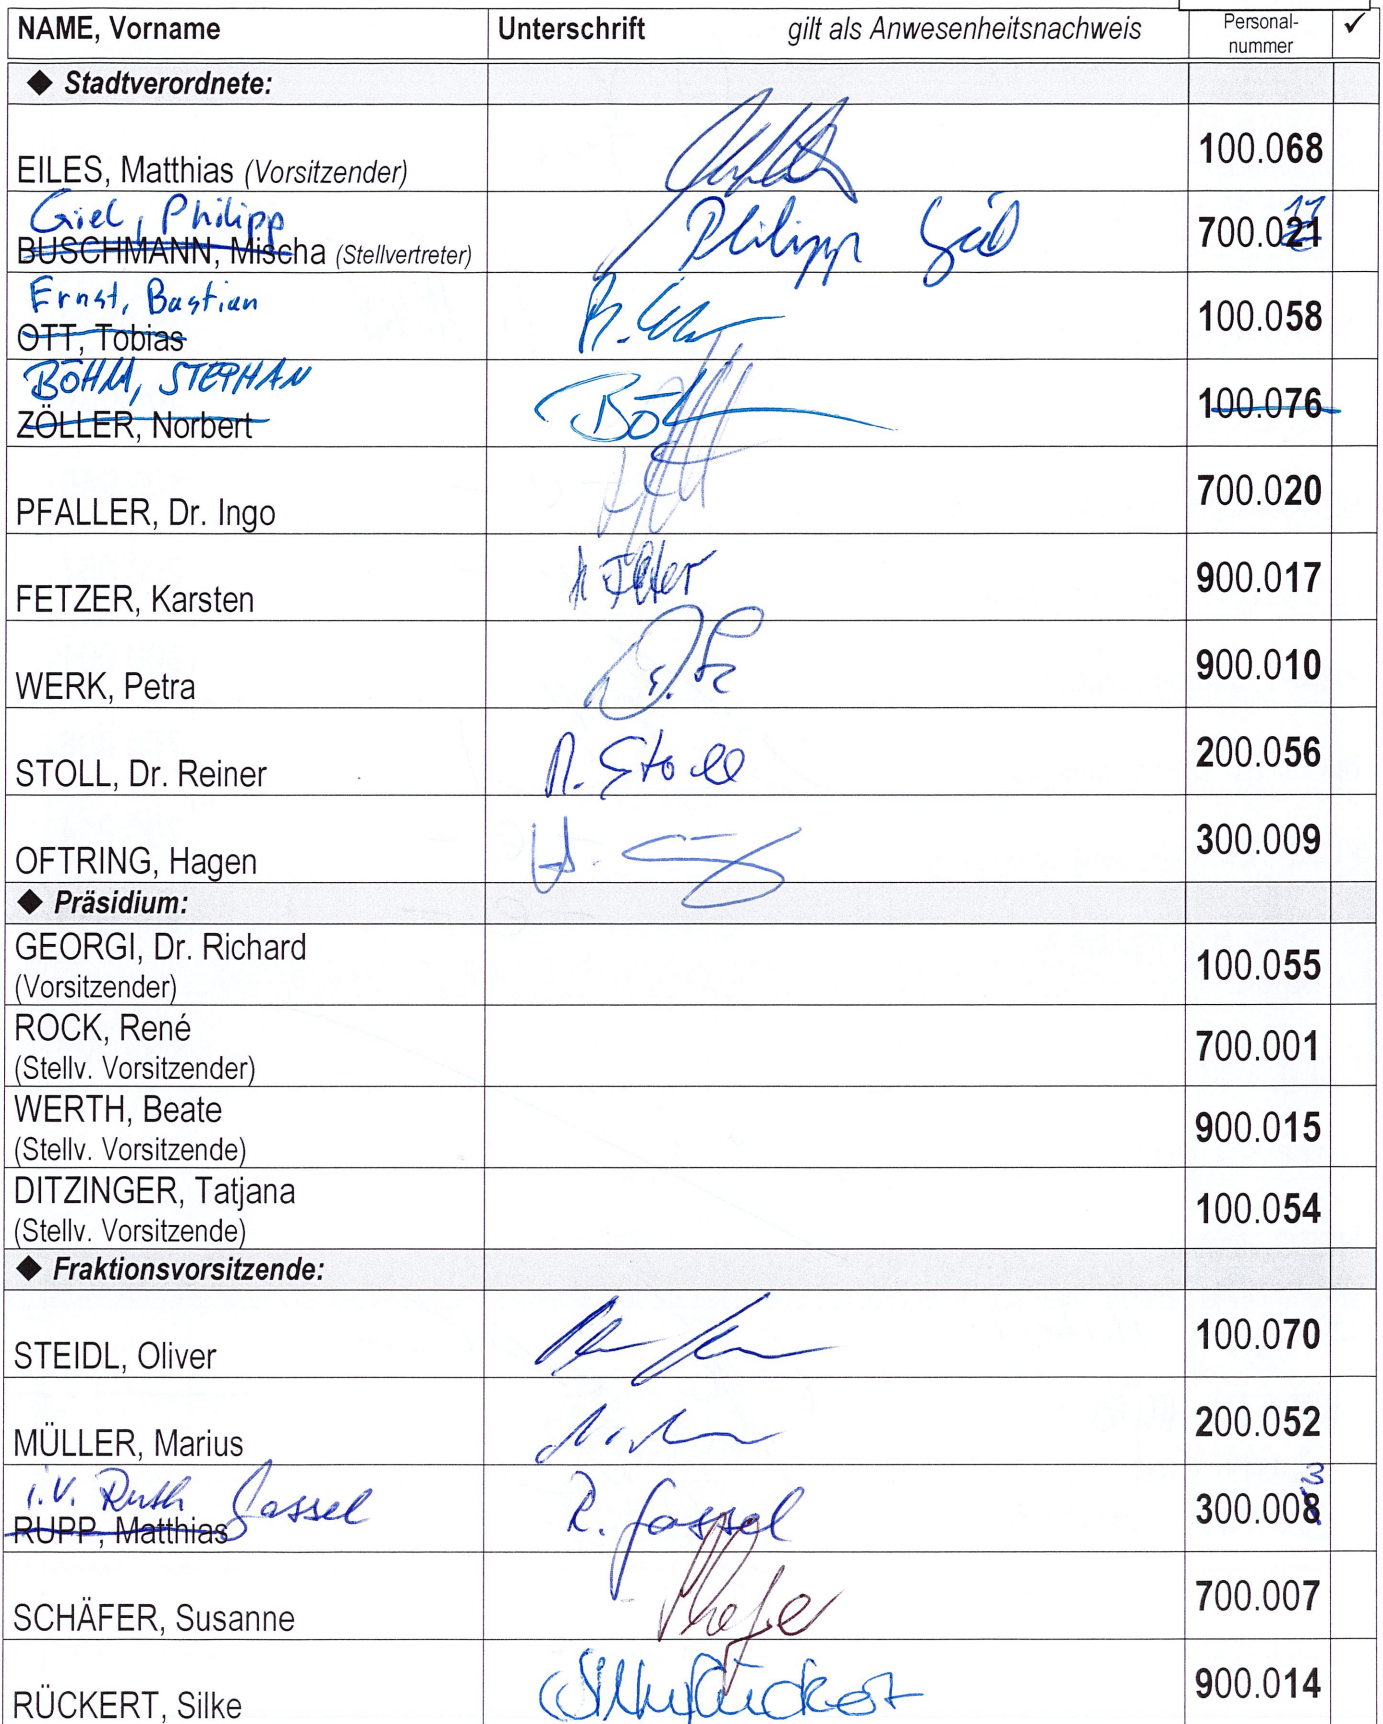 NAME, Vorname Unterschrift gilt als Anwesenheitsnachweis Personal-
nummer ✓
◆ Stadtverordnete:
EILES, Matthias (Vorsitzender) 100.068
Giel, Philipp Philipp Giel
BUSCHMANN, Mischa (Stellvertreter) 700.021 11
Ernst, Bastian
OTT, Tobias 100.058
BÖHM, STEPHAN
ZÖLLER, Norbert 100.076
PFALLER, Dr. Ingo 700.020
FETZER, Karsten 900.017
WERK, Petra 900.010
STOLL, Dr. Reiner R. Stoll 200.056
OFTRING, Hagen 300.009
◆ Präsidium:
GEORGI, Dr. Richard 100.055
(Vorsitzender)
ROCK, René 700.001
(Stellv. Vorsitzender)
WERTH, Beate 900.015
(Stellv. Vorsitzende)
DITZINGER, Tatjana 100.054
(Stellv. Vorsitzende)
◆ Fraktionsvorsitzende:
STEIDL, Oliver 100.070
MÜLLER, Marius 200.052
i.V. Ruth Gassel R. Gassel 3
RUPP, Matthias 300.008
SCHÄFER, Susanne 700.007
RÜCKERT, Silke Silke Rückert 900.014